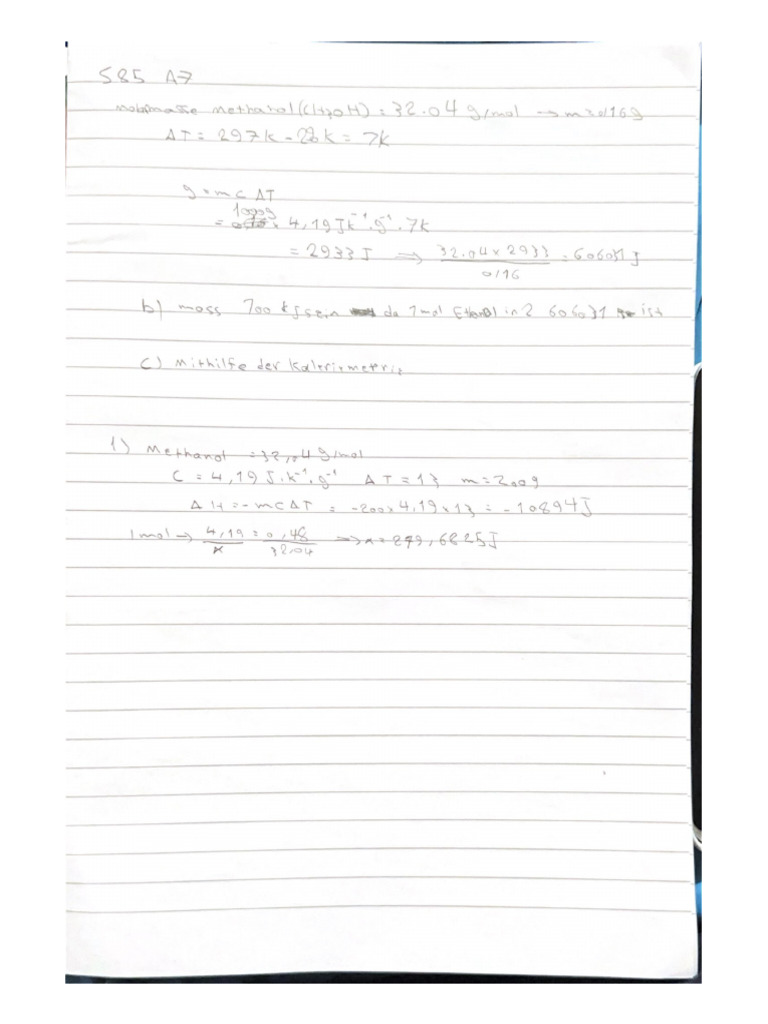 S85 A7
Molarmasse Methanol (CH3OH) = 32.04 g/mol → m=0,16g
ΔT = 297k - 290k = 7k
q = m c ΔT
= 100g × 4,19 J k⁻¹ · g⁻¹ · 7k
= 2933 J → 32.04 x 2933 / 0,16 = 606031 J
b) moss 700 kJ sein da 1mol Ethanol in 2 606031 ist
c) Mithilfe der Kalorimetrie
1) Methanol = 32,04 g/mol
C = 4,19 J · k⁻¹ · g⁻¹ ΔT = 13 m = 200g
Δ H = - m c Δ T = -200 x 4,19 x 13 = - 10894 J
1mol → 4,19 / x = 0,48 / 32.04 → x = 279,6825 J